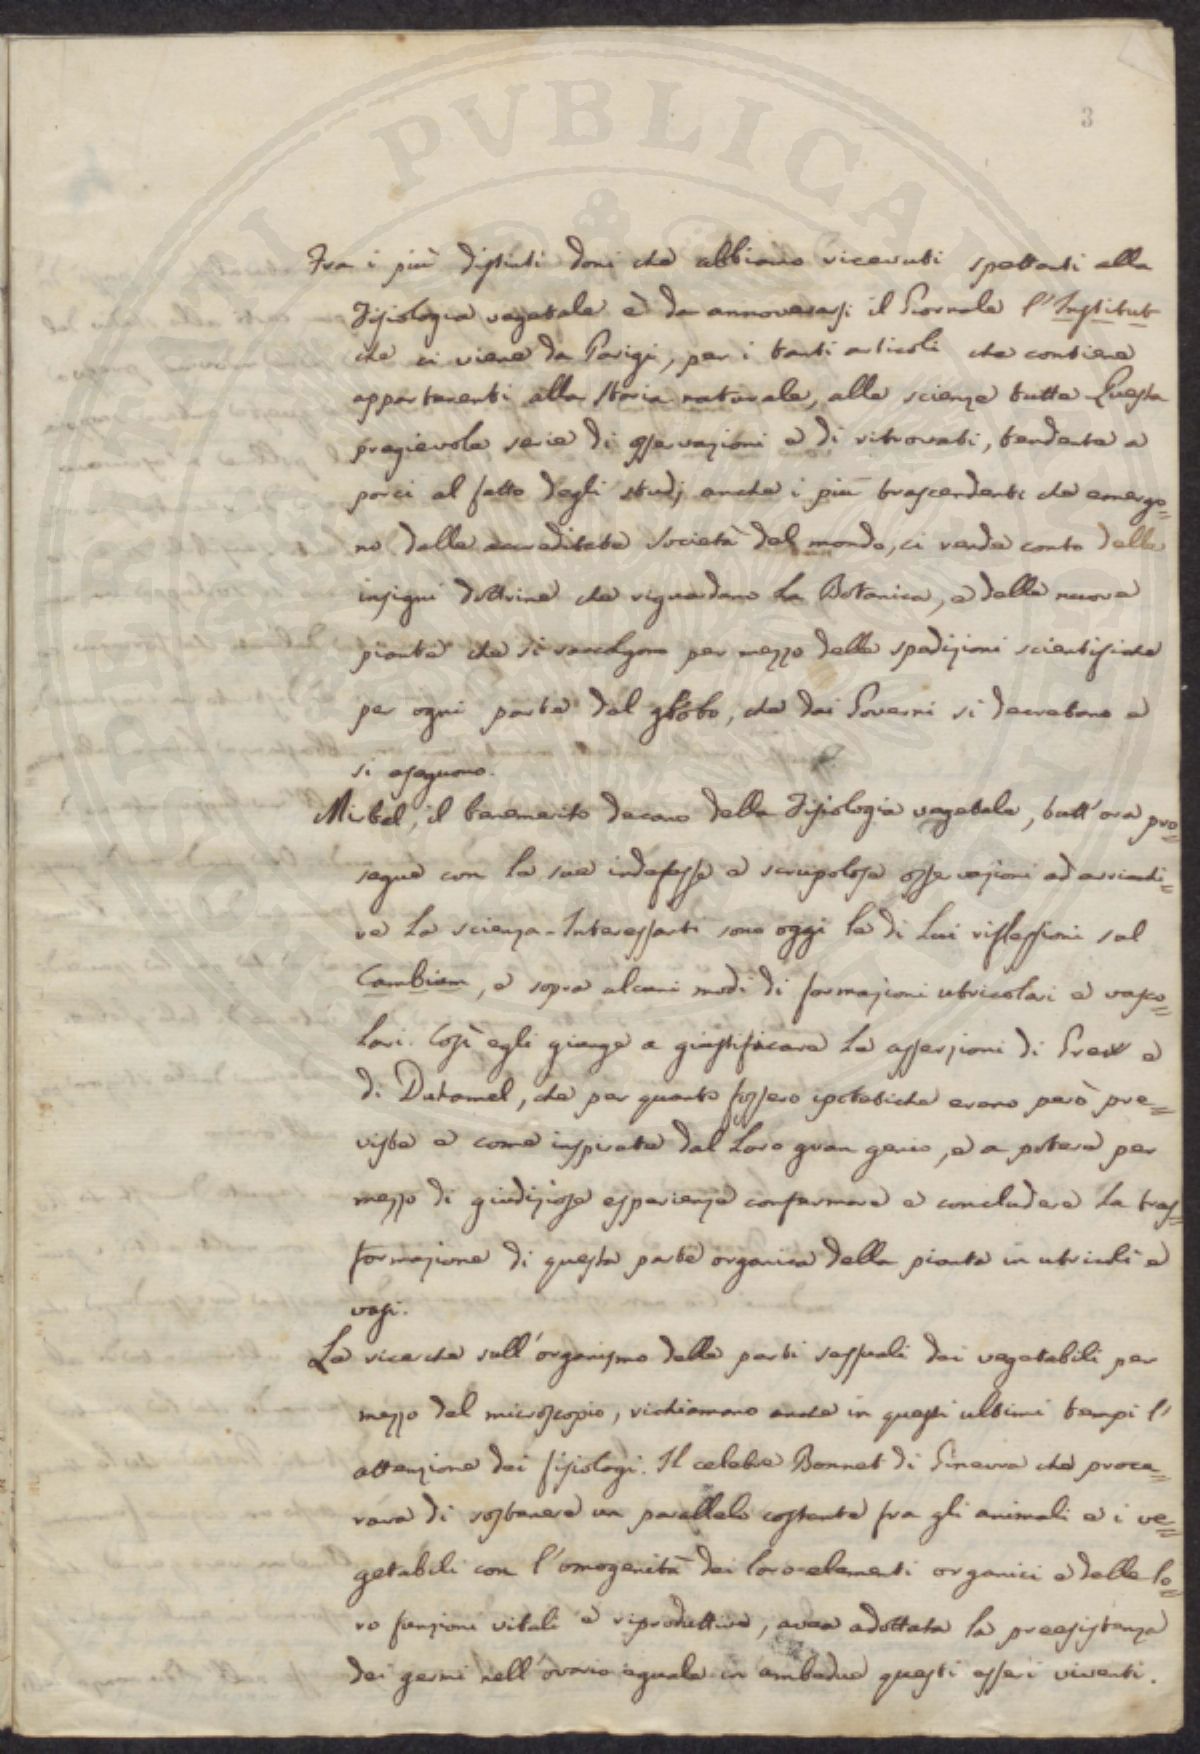 3
Fra i più distinti doni che abbiamo ricevuti spettanti alla
Fisiologia vegetale è da annoverarsi il Giornale l'Institut
che ci viene da Parigi, per i tanti articoli che contiene
appartenenti alla Storia naturale, alle scienze tutte. Questa
pregievole serie di osservazioni e di ritrovati, tendente a
porci al fatto degli studj anche i più trascendenti che emergo=
no dalle accreditate Società del mondo, ci rende conto delle
insigni dottrine che riguardano la Botanica, e delle nuove
piante che si raccolgono per mezzo delle spedizioni scientifiche
per ogni parte del globo, che dai Governi si decretano e
si eseguono.
Mirbel, il benemerito decano della Fisiologia vegetale, tutt'ora pro=
segue con le sue indefesse e scrupolose osservazioni ad arricchi=
re la scienza. Interessanti sono oggi le di Lui riflessioni sul
Cambium, e sopra alcuni modi di formazioni utricolari e vasco=
lari. Così egli giunge a giustificare le asserzioni di Grew e
di Duhamel, che per quanto fossero ipotetiche erano però pre=
viste e come inspirate dal Loro gran genio, e a potere per
mezzo di giudiziose esperienze confermare e concludere la tras=
formazione di questa parte organica delle piante in utricoli e
vasi.
Le ricerche sull'organismo delle parti sessuali dei vegetabili per
mezzo del microscopio, richiamano anche in questi ultimi tempi l'
attenzione dei fisiologi. Il celebre Bonnet di Ginevra che procu=
rava di sostenere un parallelo costante fra gli animali e i ve=
getabili con l'omogenità dei loro elementi organici e delle lo=
ro funzioni vitali e riproduttive, avea adottata la preesistenza
dei germi nell'ovario eguale in ambedue questi esseri viventi.